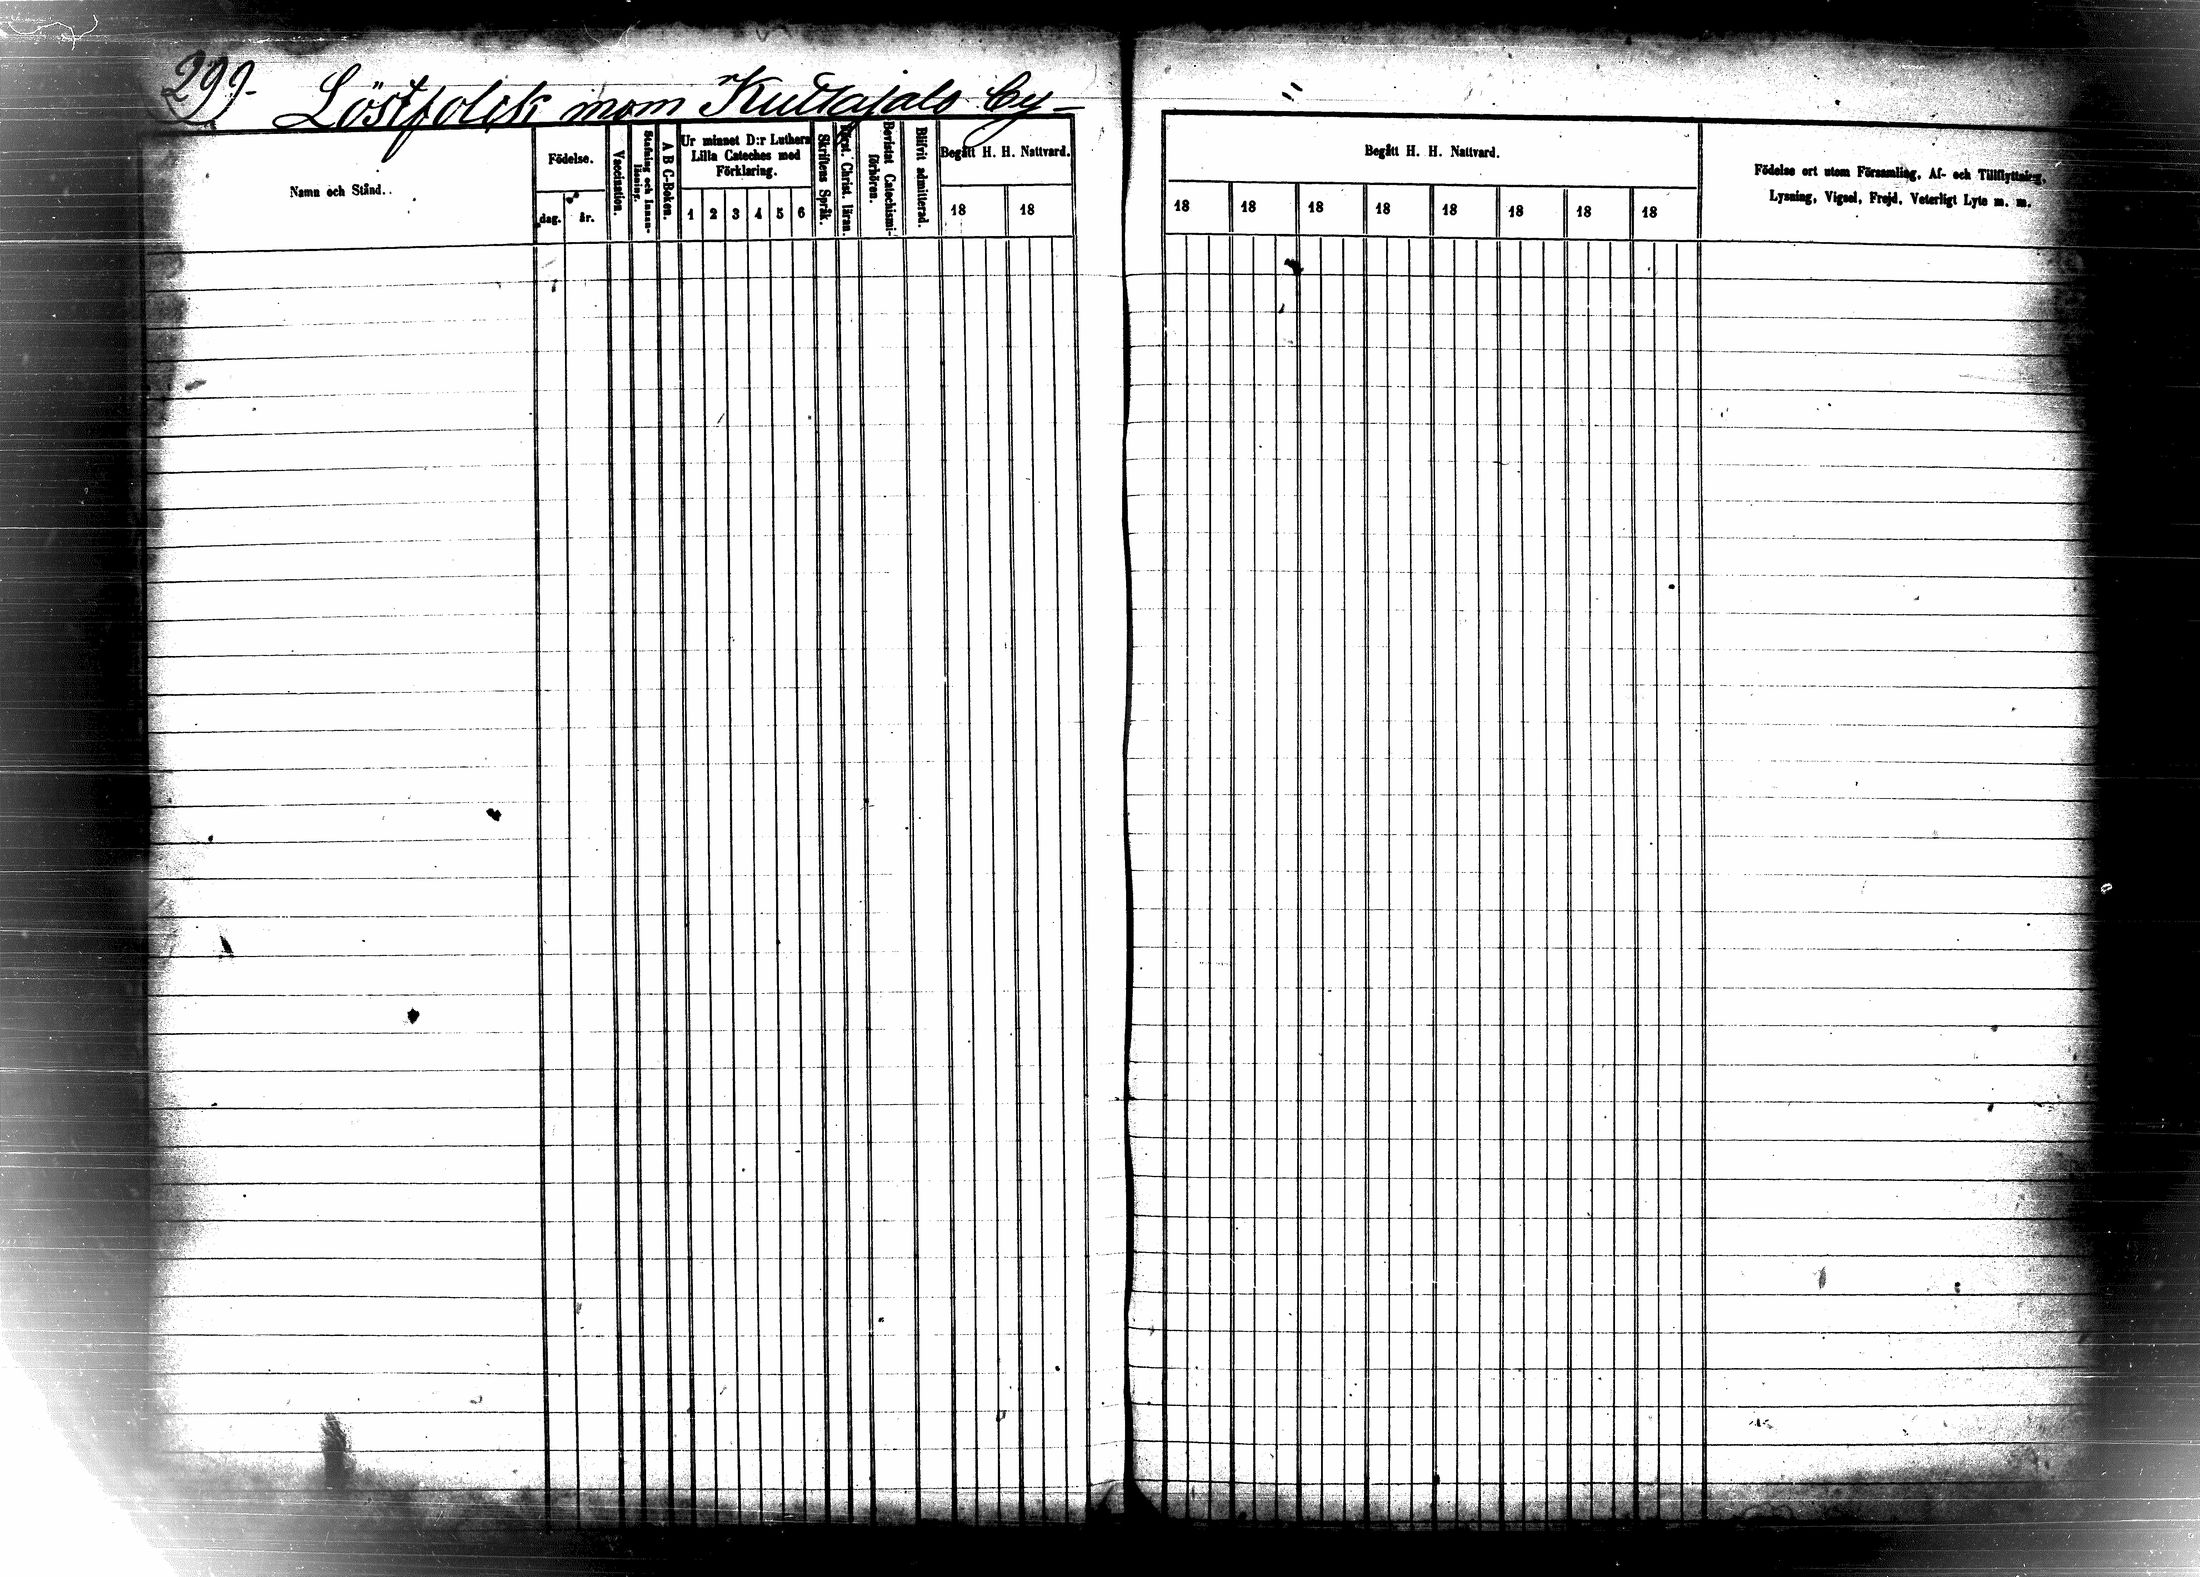 299.
Löstfolck inom Kuttajalo by –
Namn och Stånd.
Födelse.
dag.
år.
Vaccination.
Stafning och Innan-
läsning.
A B C-Boken.
Ur minnet D:r Luthers
Lilla Cateches med
Förklaring.
1 2 3 4 5 6
Skriftens Språk.
Först. Christ. läran.
Bevistat Catechismi-
förhören.
Blifvit admitterad.
Begått H. H. Nattvard.
18 18
Begått H. H. Nattvard.
18 18 18 18 18 18 18 18
Födelse ort utom Församling, Af- och Tillflyttning,
Lysning, Vigsel, Frejd, Veterligt Lyte m. m.